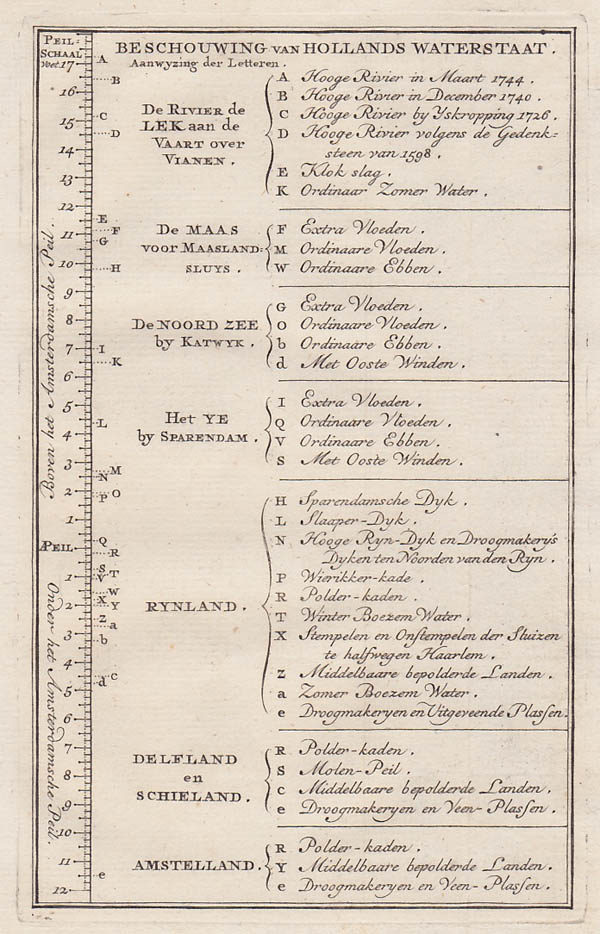 PEIL-
SCHAAL
voet 17
16
15
14
13
12
11
10
9
8
7
6
5
4
3
2
1
Æ PEIL
1
2
3
4
5
6
7
8
9
10
11
12
Boven het Amsterdamsche Peil.
Onder het Amsterdamsche Peil.
A
B
C
D
E
F
G
H
I
K
L
M
N
O
P
Q
R
S
T
V
W
X
Y
Z
a
b
c
d
e
BESCHOUWING VAN HOLLANDS WATERSTAAT.
Aanwyzing der Letteren.
De RIVIER de
LEK aan de
VAART over
VIANEN.
A Hooge Rivier in Maart 1744.
B Hooge Rivier in December 1740.
C Hooge Rivier by Yskropping 1726.
D Hooge Rivier volgens de Gedenk-
steen van 1598.
E Klok slag.
K Ordinaar Zomer Water.
De MAAS
voor MAASLAND-
SLUYS.
F Extra Vloeden.
M Ordinaare Vloeden.
W Ordinaare Ebben.
De NOORD ZEE
by KATWYK.
G Extra Vloeden.
O Ordinaare Vloeden.
b Ordinaare Ebben.
d Met Ooste Winden.
Het YE
by SPARENDAM.
I Extra Vloeden.
Q Ordinaare Vloeden.
V Ordinaare Ebben.
S Met Ooste Winden.
RYNLAND.
H Sparendamsche Dyk.
L Slaaper-Dyk.
N Hooge Ryn-Dyk en Droogmakery's
Dyken ten Noorden van den Ryn.
P Wierikker-kade.
R Polder-kaden.
T Winter Boezem Water.
X Stempelen en Onstempelen der Sluizen
te halfwegen Haarlem.
Z Middelbaare bepolderde Landen.
a Zomer Boezem Water.
e Droogmakeryen en Uitgeveende Plassen.
DELFLAND
en
SCHIELAND.
R Polder-kaden.
S Molen-Peil.
c Middelbaare bepolderde Landen.
e Droogmakeryen en Veen-Plassen.
AMSTELLAND.
R Polder-kaden.
Y Middelbaare bepolderde Landen.
e Droogmakeryen en Veen-Plassen.